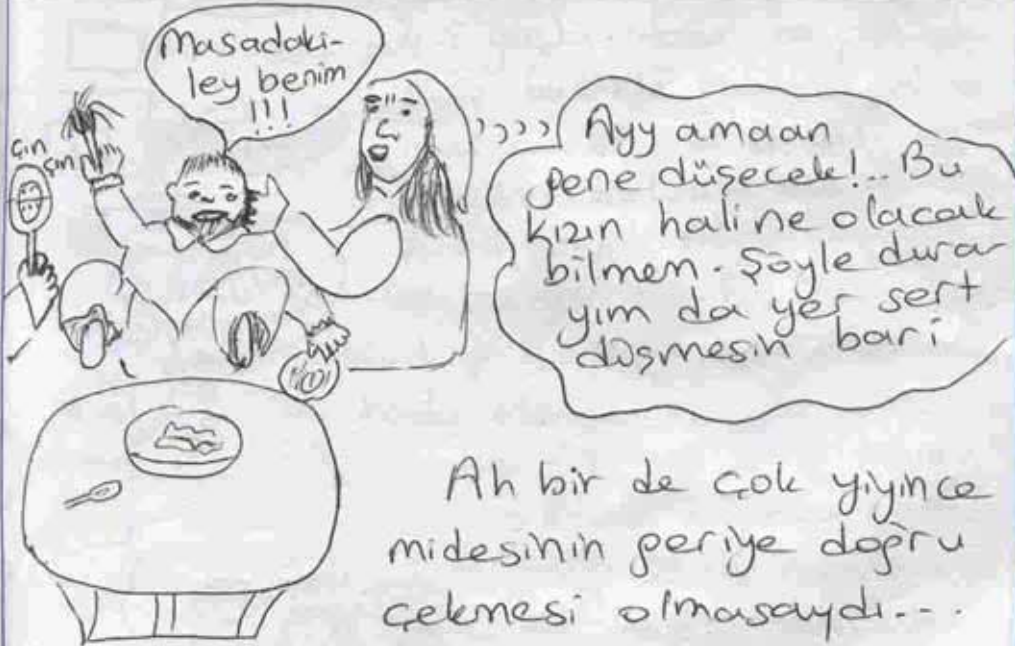 Masadaki-
ley benim
!!!
çın
çın
Ayy amaan
gene düşecek!.. Bu
kızın hali ne olacak
bilmem. Şöyle dura
yım da yer sert
düşmesin bari
Ah bir de çok yiyince
midesinin geriye doğru
çekmesi olmasaydı...